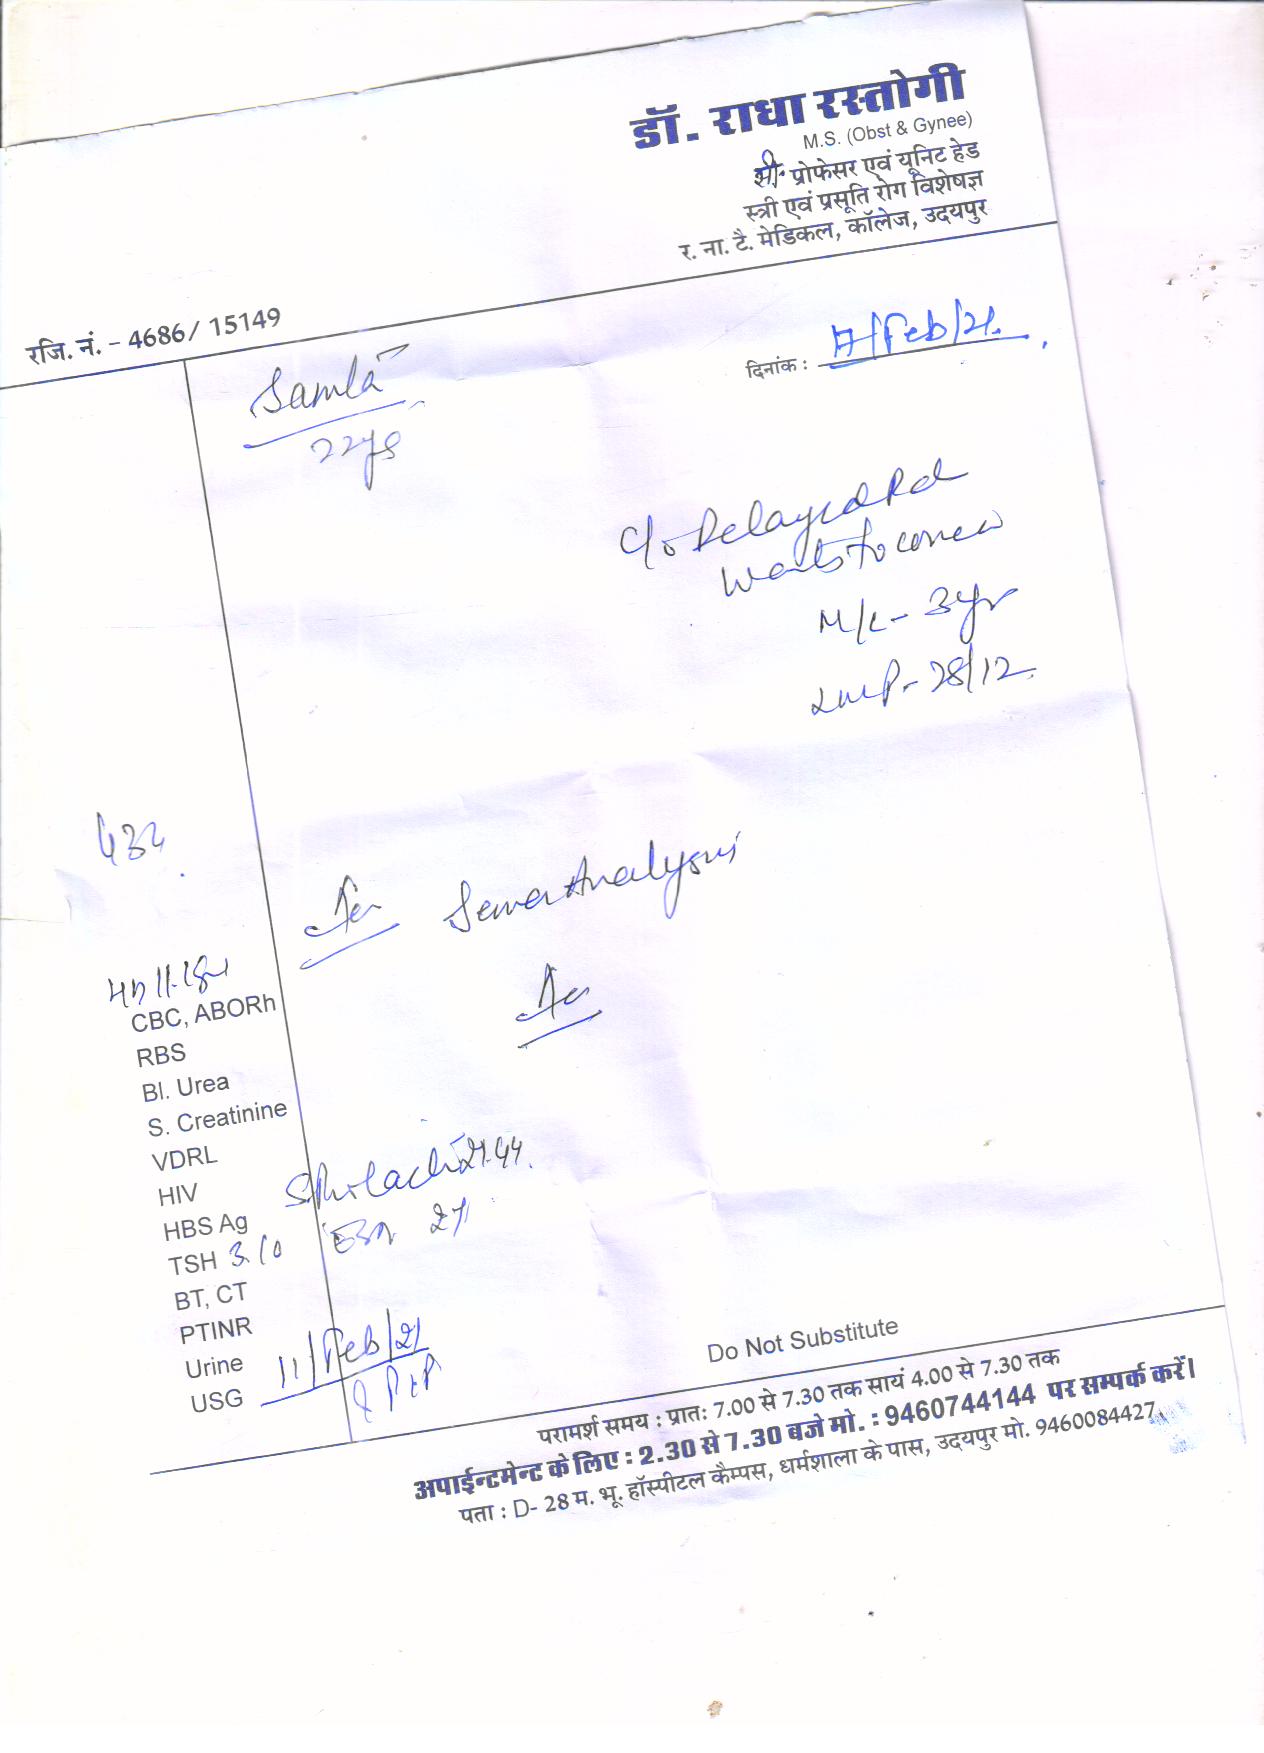 डॉ. राधा रस्तोगी
M.S. (Obst & Gynee)
प्रोफेसर एवं यूनिट हेड
स्त्री एवं प्रसूति रोग विशेषज्ञ
र. ना. टै. मेडिकल, कॉलेज, उदयपुर
रजि. नं. - 4686/ 15149
दिनांक : /Feb/21.
Samla
22ys
C/o Delayed Pd
wants to concei
M/L - 3yr
LMP - 28/12
Semen Analysis
CBC, ABORh
RBS
Bl. Urea
S. Creatinine
VDRL
HIV
HBS Ag
S. Prolactin 21.44.
TSH 3.10
BT, CT
PTINR
Urine 11/Feb/21
USG
Do Not Substitute
परामर्श समय : प्रातः 7.00 से 7.30 तक सायं 4.00 से 7.30 तक
अपाईन्टमेन्ट के लिए : 2.30 से 7.30 बजे मो. : 9460744144 पर सम्पर्क करें।
पता : D- 28 म. भू. हॉस्पीटल कैम्पस, धर्मशाला के पास, उदयपुर मो. 9460084427